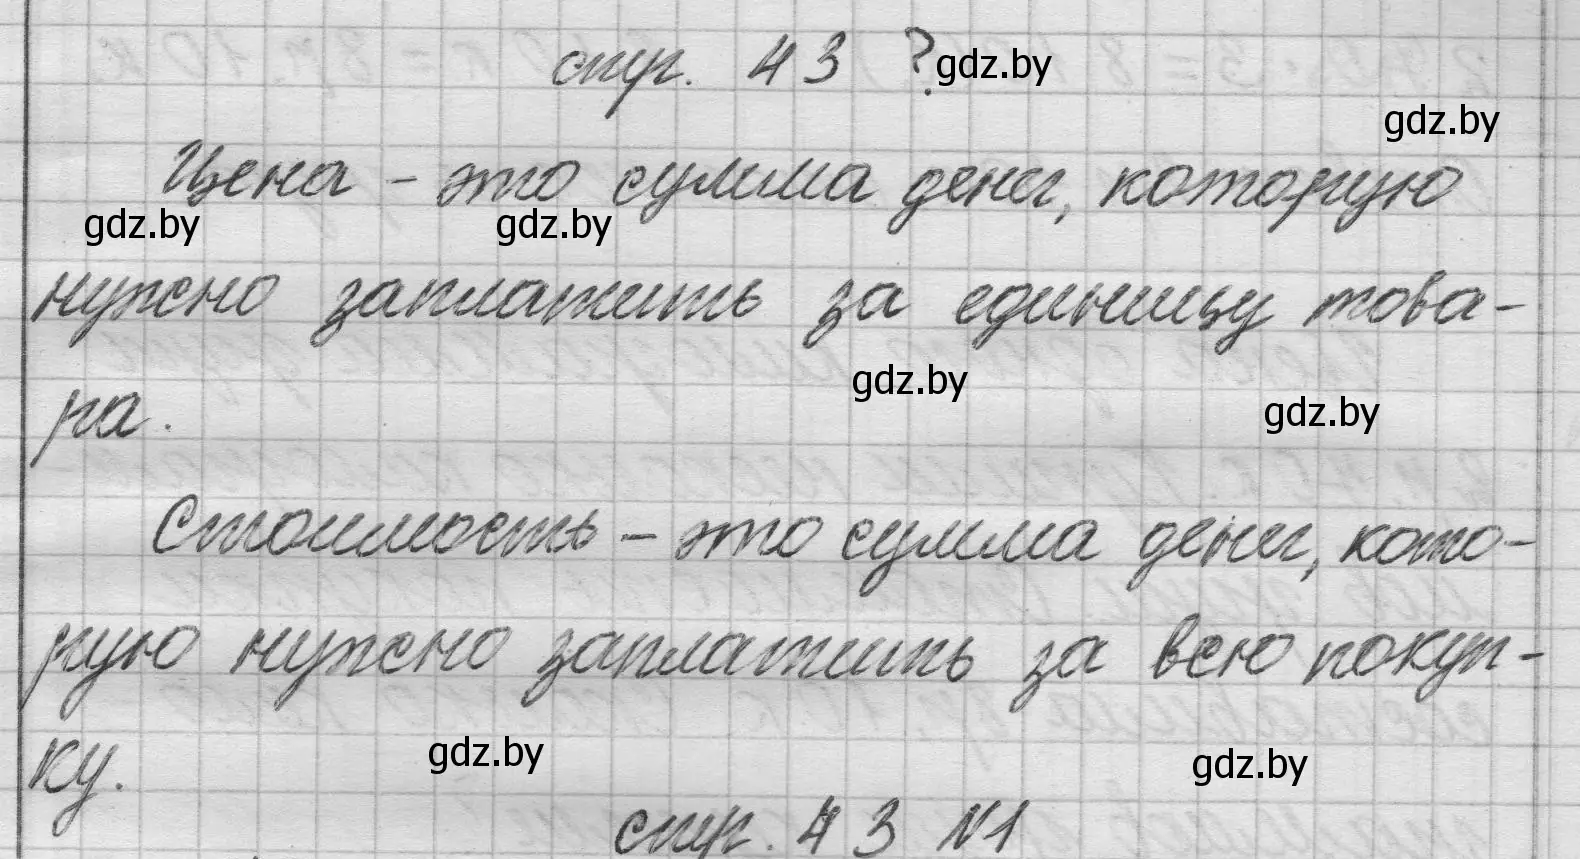 стр. 43 ?
gdz.by
gdz.by
Цена - это сумма денег, которую
gdz.by gdz.by
нужно заплатить за единицу това-
gdz.by
gdz.by
ра.
Стоимость - это сумма денег, кото-
рую нужно заплатить за всю покуп-
gdz.by gdz.by
ку.
стр. 43 №1